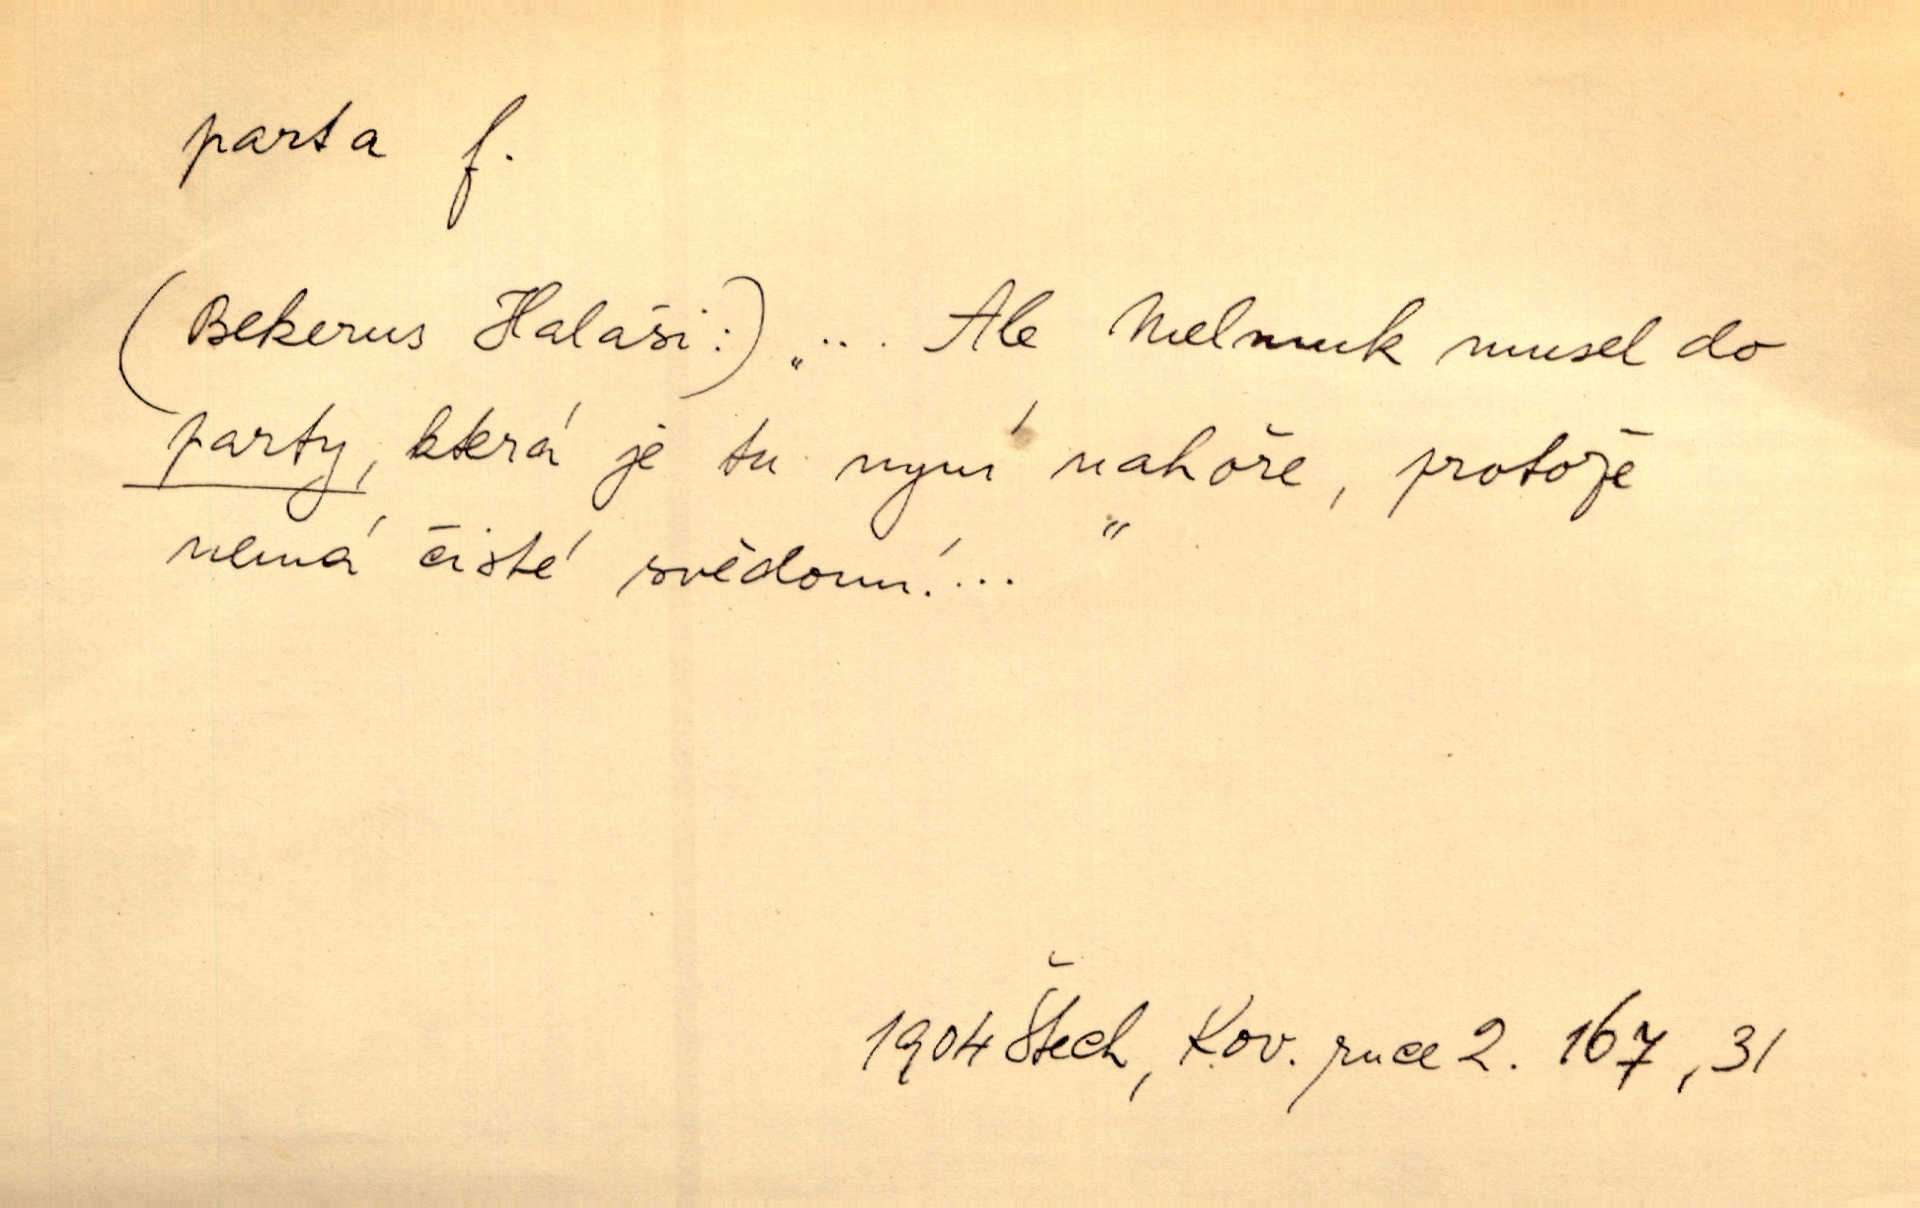 parta f.
(Bekerus Halaši:) „... Ale Melmuk musel do
party, která je tu nyní nahoře, protože
nemá čisté svědomí. ..."
1904 Štech, Kov. ruce 2. 167, 31